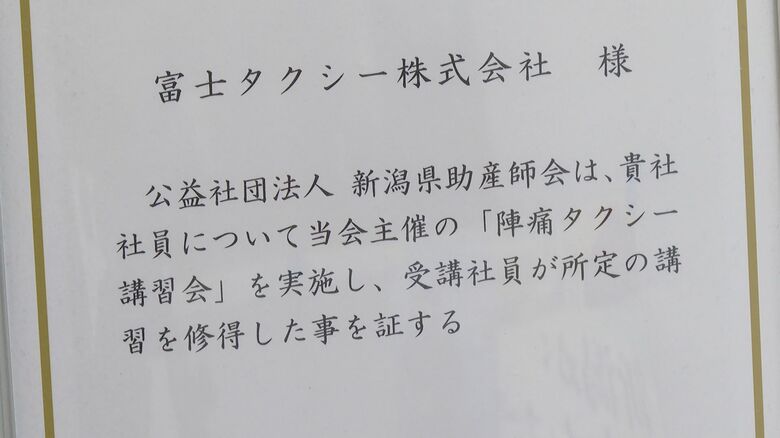 富士タクシー株式会社　様
公益社団法人 新潟県助産師会は、貴社
社員について当会主催の「陣痛タクシー
講習会」を実施し、受講社員が所定の講
習を修得した事を証する